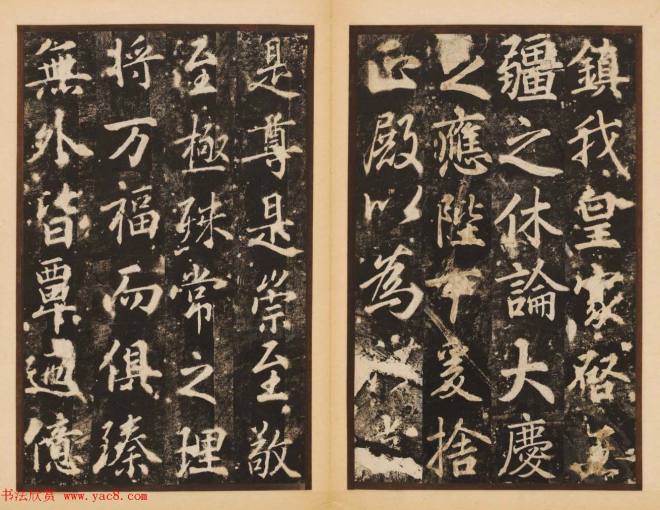 鎮我皇家啓無
疆之休論大慶
之應陛下爰捨
正殿以為
是尊是崇至敬
至極殊常之理
将万福而俱臻
無外皆覃迺億
书法欣赏 www.yac8.com